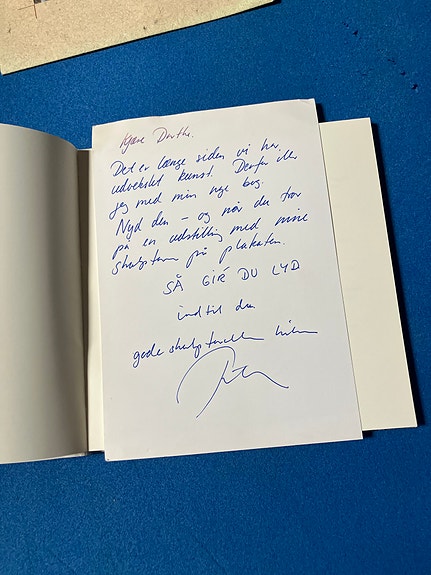 Kære Dorthe.
Det er længe siden vi har
udvekslet kunst. Derfor
jeg med min nye bog.
Nyd den – og når du tror
på en udstilling med mine
skulpturer på plakaten.
SÅ GIR DU LYD
indtil da
gode skulpturelle hilsner